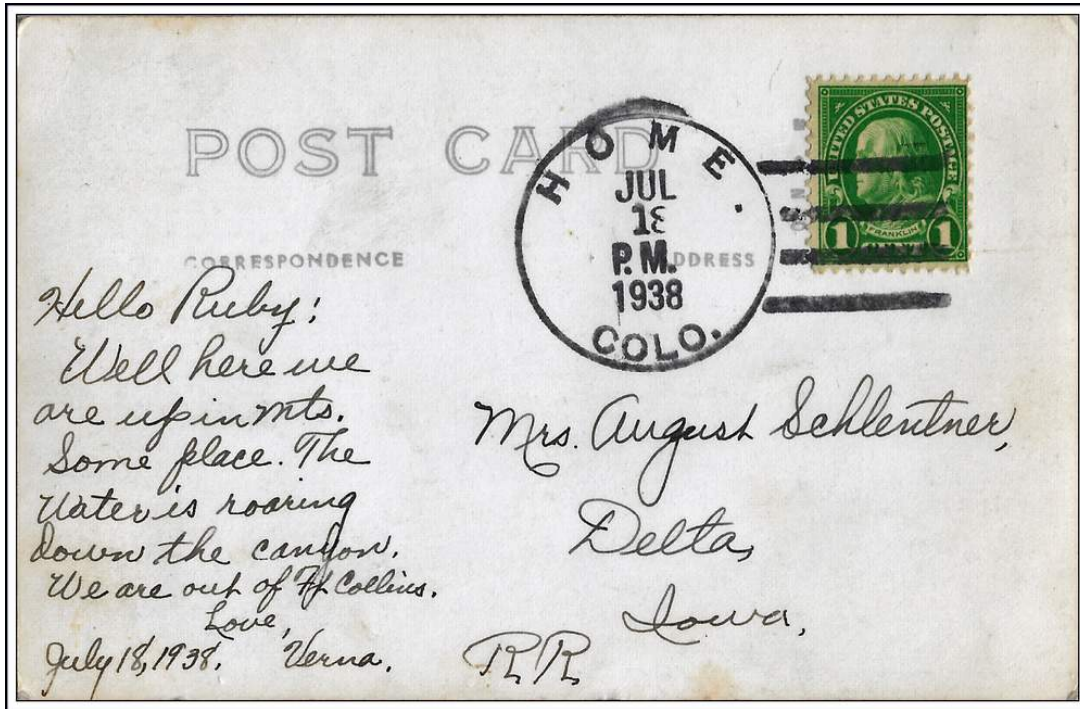 POST CARD
CORRESPONDENCE
ADDRESS
HOME.
JUL
18
P.M.
1938
COLO.
UNITED STATES POSTAGE
1 FRANKLIN 1
Hello Ruby;
Well here we
are up in Mts.
Some place. The
Water is roaring
down the canyon.
We are out of Ft Collins.
Love,
July 18, 1938. Verna.
Mrs. August Schlentner,
Delta,
Iowa,
RR